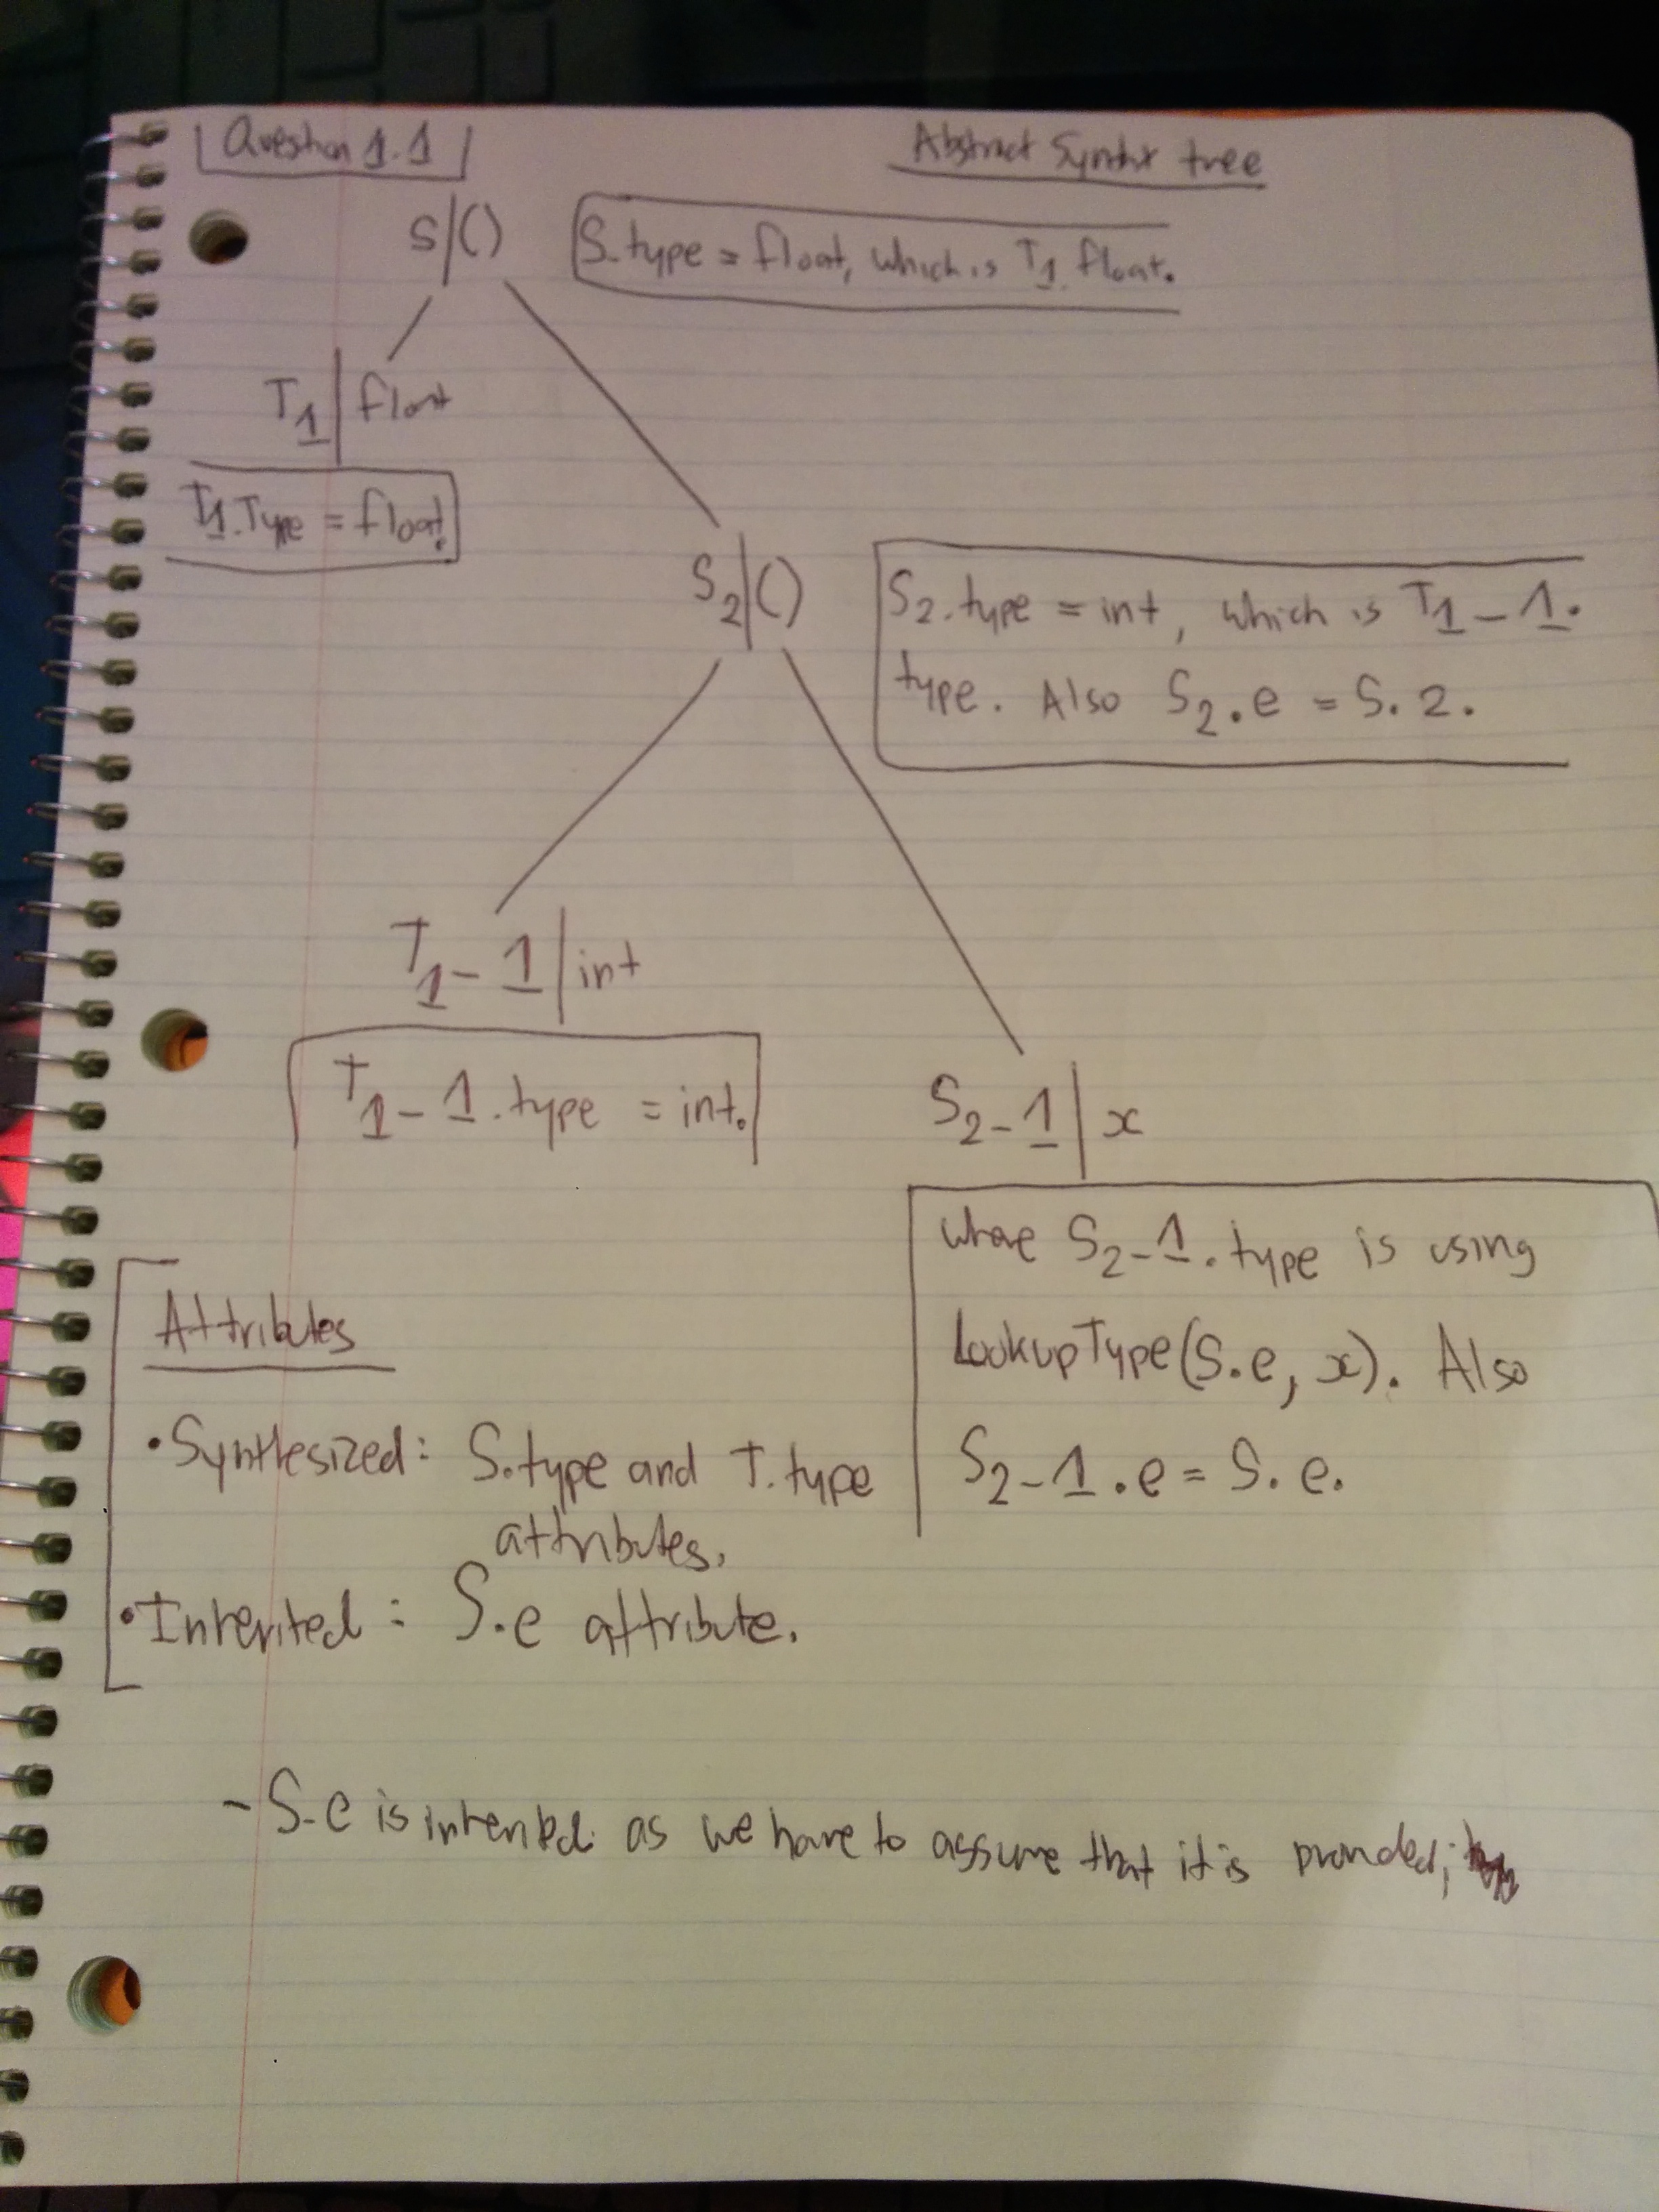 Question 1.1
Abstract Syntax tree
S|()
S.type = float, which is T1.float.
T1|float
T1.Type = float.
S2|()
S2.type = int, which is T1-1.
type. Also S2.e = S.2.
T1-1|int
T1-1.type = int.
S2-1|x
where S2-1.type is using
LookupType(S.e, x). Also
S2-1.e = S.e.
Attributes
• Synthesized: S.type and T.type
attributes.
• Inherited: S.e attribute.
- S.e is inherited as we have to assume that it is provided;